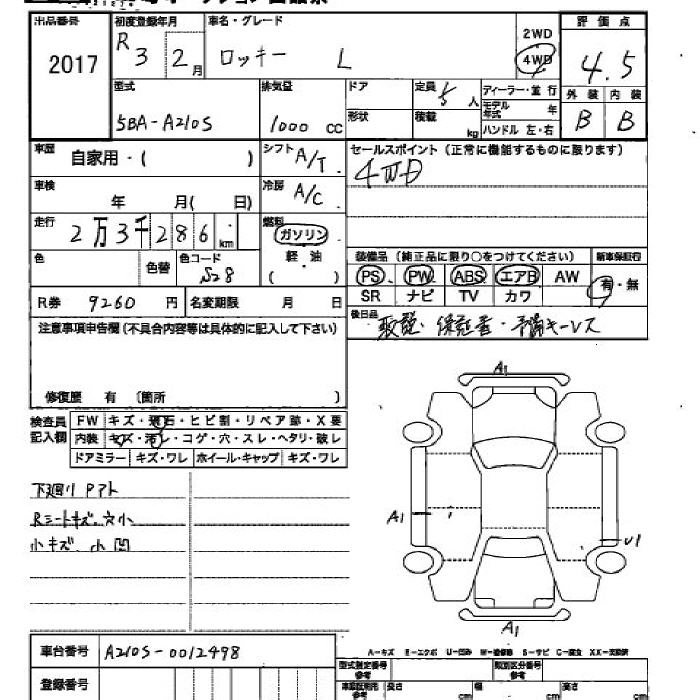 出品番号 初度登録年月 車名・グレード 評価点
2017 R3 2月 ロッキー L 2WD 4WD 4.5
型式 排気量 ドア 定員 5人 ディーラー・並行 外装 内装
5BA-A210S 1000 CC 形状 積載 kg モデル年式 年 B B
ハンドル 左・右
車歴 自家用・( ) シフト A/T セールスポイント (正常に機能するものに限ります)
4WD
車検 年 月( 日) 冷房 A/C
走行 2万3千286km 燃料 ガソリン
軽油
( )
色 色替 色コード S28
装備品 (純正品に限り○をつけてください) 新車保証行
PS PW ABS エアB AW 有・無
SR ナビ TV カワ
R券 9260円 名変期限 月 日
後日品 取説・保証書・予備キーレス
注意事項申告欄(不具合内容等は具体的に記入して下さい)
修復歴 有 〔箇所 〕
検査員記入欄 FW キズ・飛石・ヒビ割・リペア跡・X要
内装 キズ・汚レ・コゲ・穴・スレ・ヘタリ・破レ
ドアミラー キズ・ワレ ホイール・キャップ キズ・ワレ
下廻り Pアト
Rシートキズ、穴小
小キズ、小凹
A1
A1
U1
A1
A-キズ E-エクボ U-凹み W-補修跡 S-サビ C-腐食 XX-交換済
車台番号 A210S-0012498
型式指定番号 参考 類別区分番号 参考
登録番号
車庫証明用 参考 長さ cm 幅 cm 高さ cm